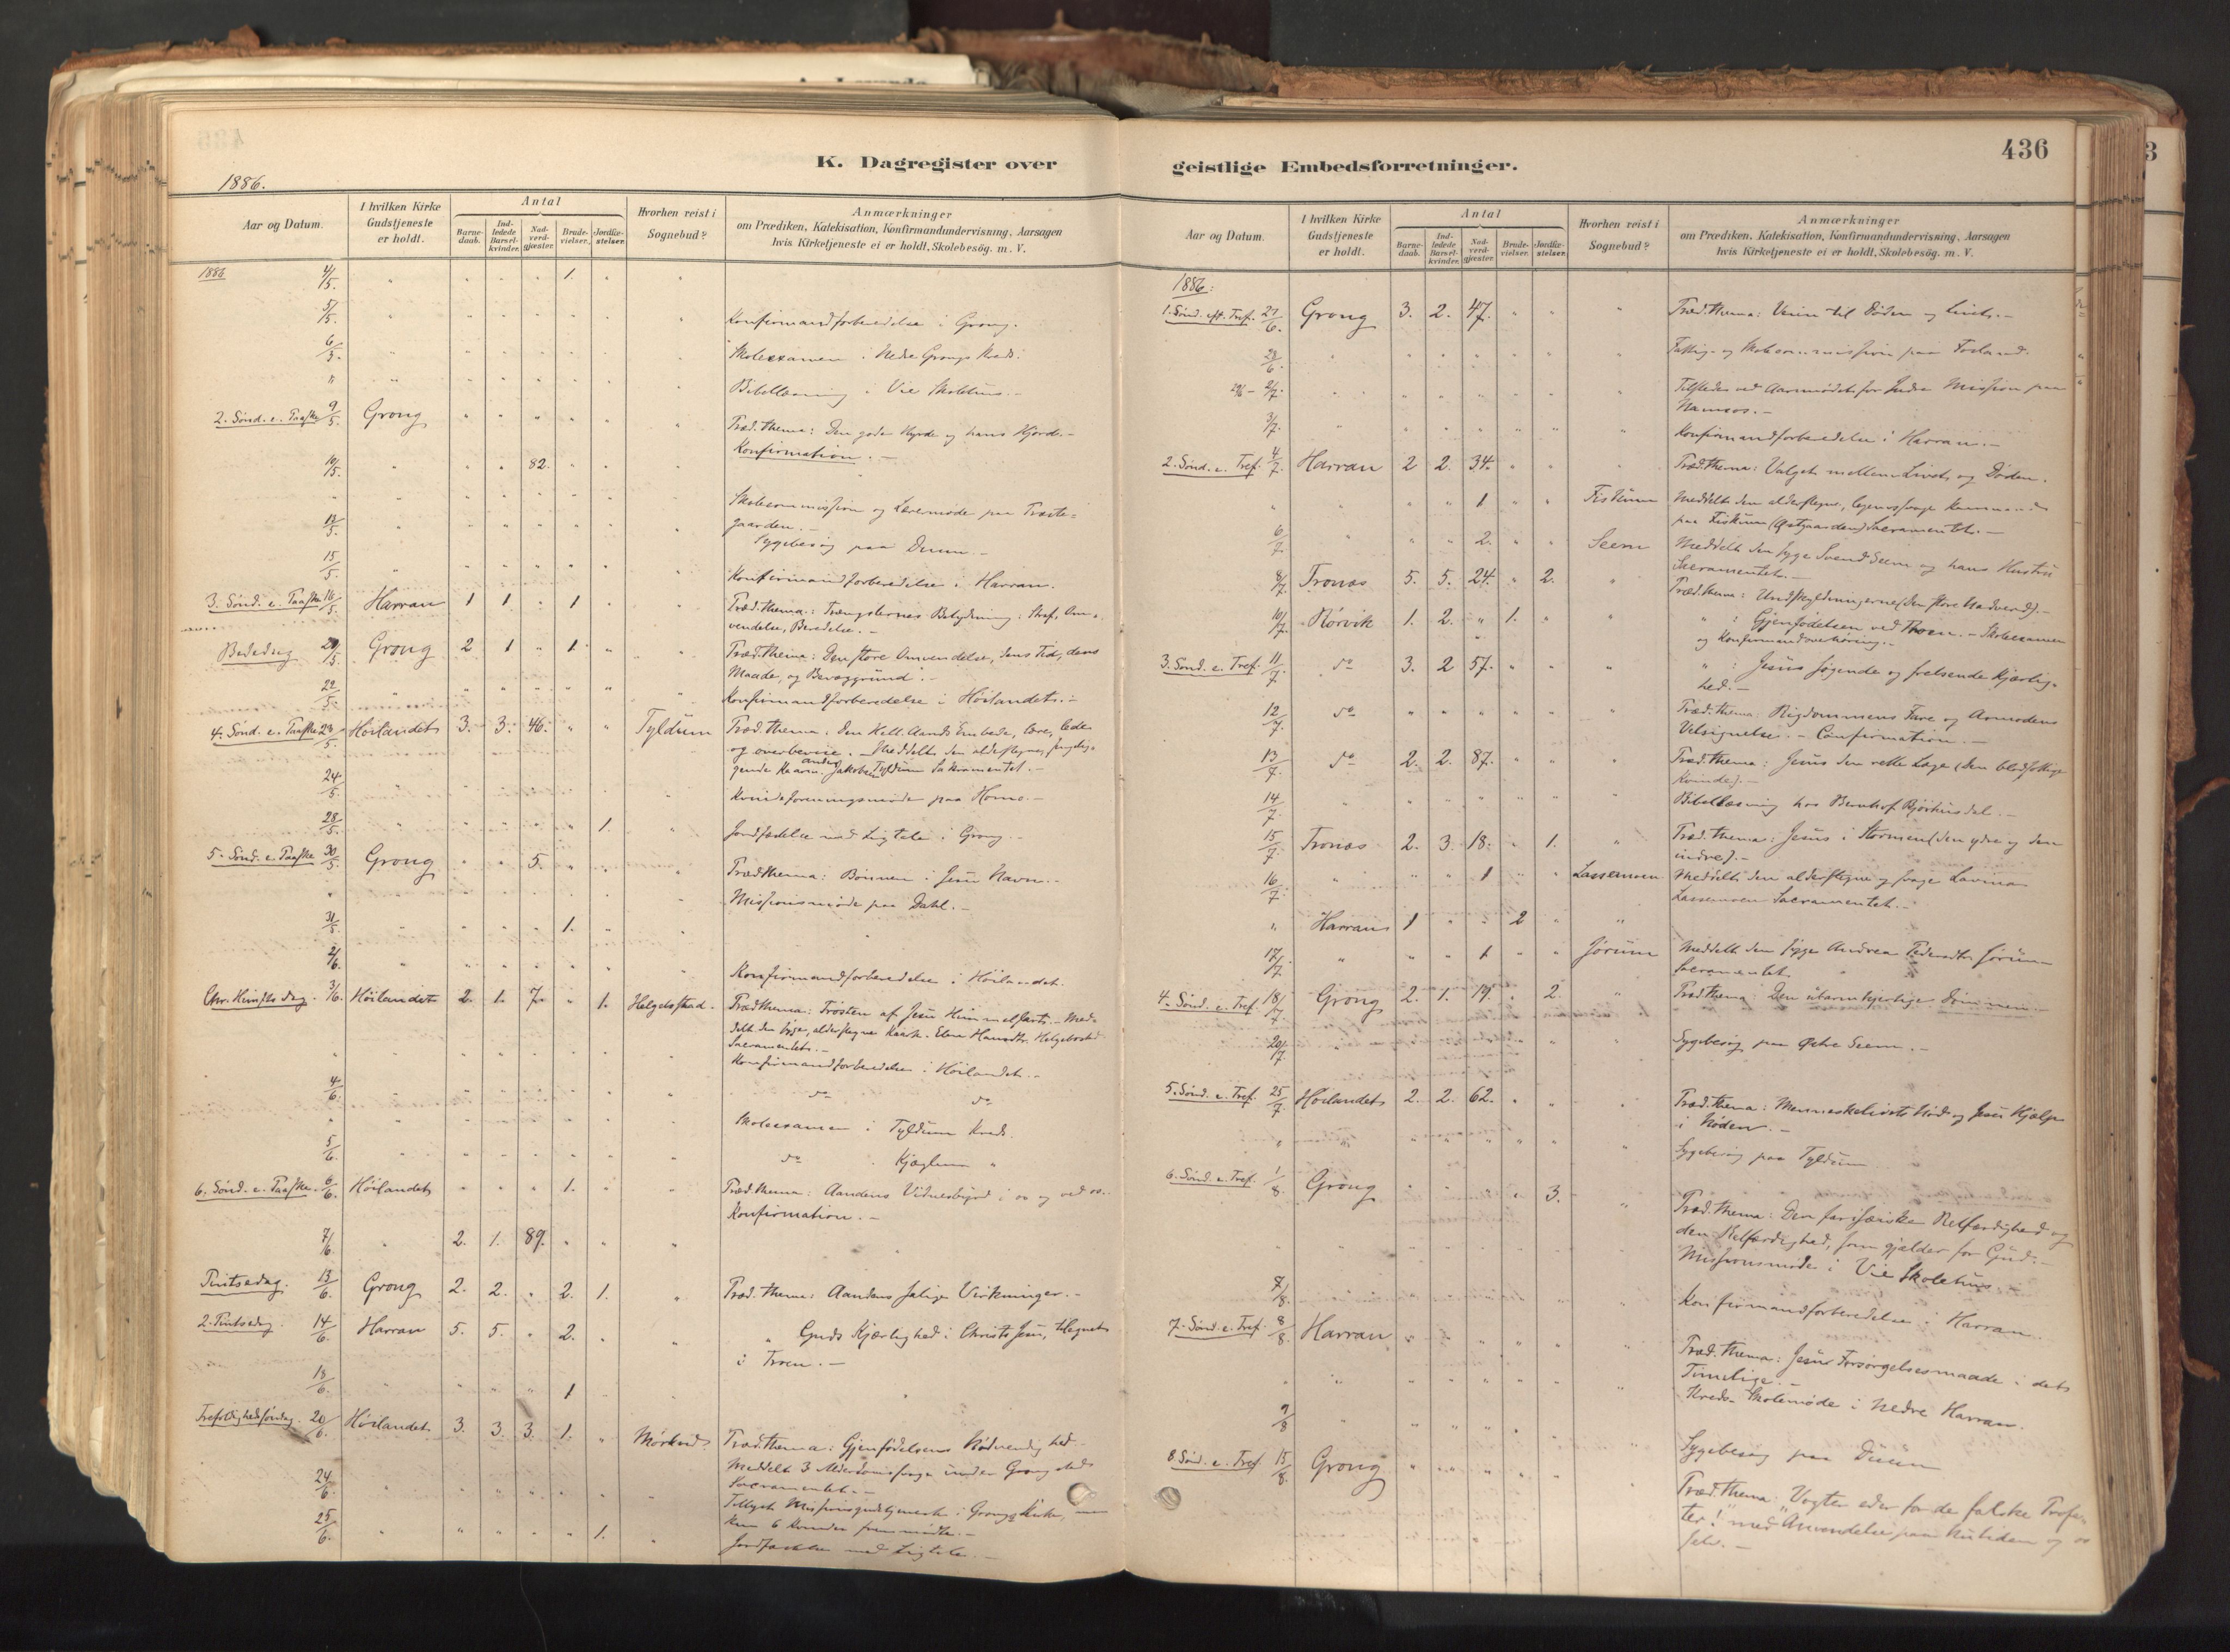 K. Dagregister over
1886.
Aar og Datum. I hvilken Kirke Gudstjeneste er holdt. Antal Barnedaab. Indledede Barselkvinder. Nadverdgjæster. Brudevielser. Jordfæstelser. Hvorhen reist i Sognebud? Anmærkninger om Prædiken, Katekisation, Konfirmandundervisning, Aarsagen hvis Kirketjeneste ei er holdt, Skolebesøg. m. V.
1886 4/5. " " " " 1. " "
5/5. Konfirmandforberedelse i Grong.
6/5. Skoleexamen i Nedre Grongs Kreds.
" Bibellæsning i Vie Skolehus.-
2. Sønd. e. Paaske 9/5. Grong Præd. thema: Den gode Hyrde og hans Hjord.-
Konfirmation.-
10/5. 82.
Skolecommission og Læremøde paa Præste=
13/5. gaarden.-
Sygebesøg paa
15/5. Konfirmandforberedelse i Harran.
3. Sønd. e. Paaske 16/5. Harran 1 1 " 1 Præd. thema: Trængslernes Betydning: Straf, Om=
vendelse, Beredelse.-
Bededag 21/5. Grong 2 1 " 1 Præd. thema: Den store Omvendelse, dens Tid, dens
Maade, og Bevæggrund.-
22/5. Konfirmandforberedelse i Höilandet.-
4. Sønd. e. Paaske 23/5. Höilandet 3. 3. 46. " " Tyldum Præd. thema: Den Hell. Aands Embede, lære, lede
og overbevise. - Meddelt den alderstegne,
Jakobsen Tyldum Sakramentet.-
24/5. Kvindeforeningsmøde paa Homo.-
28/5. 1. Jordfæstelse med Ligtale i Grong.-
5. Sønd. e. Paaske 30/5. Grong 5. Præd. thema: Bønnen i Jesu Navn.-
Missionsmøde paa Dahl.-
31/5. 1.
2/6. Konfirmandforberedelse i Höilandet.
Chr. Himfts dag. 3/6. Höilandet 2. 1. 7. " 1. Helgebostad. Præd. thema: Trøsten af Jesu Himmelfart. - Med=
delt den syge, alderstegne Elen Helgebostad
Sacramentet.-
Konfirmandforberedelse i Höilandet.-
4/6. do do
Skoleexamen i Tyldum Kreds.
5/6. do Kjøglum "
6. Sønd. e. Paaske. 6/6. Höilandet 1. Præd. thema: Aandens Vidnesbyrd i os og ved os.
Konfirmation.-
7/6. 2. 1. 89.
Pintsedag. 13/6. Grong 2. 2. " 2. 1. Præd. thema: Aandens salige Virkninger.-
2. Pintsedag. 14/6. Harran 5. 5. " 2. " Guds Kjærlighed i Christo Jesu, tilegnet
i Troen.-
18/6. 1
Trefoldighedssøndag. 20/6. Höilandet 3. 3. 3. 1. Mörkved Præd. thema: Gjenfödelsens Nödvendighed.
Meddelt 3 Alderdomssvage
24/6. Sacramentet.-
Tillyst Missionsgudstjeneste i Grongs Kirke, men
25/6. 1. kun 6 Kvinder fremmødte.-
Jordfæstelse med Ligtale.-
436
geistlige Embedsforretninger.
Aar og Datum. I hvilken Kirke Gudstjeneste er holdt. Antal Barnedaab. Indledede Barselkvinder. Nadverdgjæster. Brudevielser. Jordfæstelser. Hvorhen reist i Sognebud? Anmærkninger om Prædiken, Katekisation, Konfirmandundervisning, Aarsagen hvis Kirketjeneste ei er holdt, Skolebesøg. m. V.
1886:
1. Sønd. eft. Tref. 27/6. Grong 3. 2. 47. Præd. thema: Veien til Døden og Livet.-
28/6. Fattig- og Skolecommission paa Fosland.
29/6 - 2/7. Tilstede ved Aarsmødet for Indre Mission paa
Namsos.-
3/7. Konfirmandforberedelse i Harran.-
2. Sønd. e. Tref. 4/7. Harran 2 2. 34. Præd. thema: Valget mellem Livet og Døden.
" 1 Fiskum Meddelt den alderstegne,
paa Fiskum (Østgaarden) Sacramentet.-
6/7. 2. Seem Meddelt den syge Svend Seem og hans Hustru
Sacramentet.-
8/7. Tronæs 5. 5. 24. " 2. Præd. thema: Undskyldningerne (Den store Nadverd).-
10/7. Rørvik 1. 2. " 1. " : Gjenfødelsen ved Troen. - Skoleexamen
og Konfirmandoverhøring.-
3. Sønd. e. Tref. 11/7. do 3. 2 57. " : Jesus søgende og frelsende Kjærlig=
hed.-
12/7. do Præd. thema: Rigdommens Fare og Armodens
Velsignelse. - Confirmation.-
13/7. do 2. 2. 87. Præd. thema: Jesus den rette Læge (den blodsottige
Kvinde).-
14/7. Bibellæsning hos Bjørhusdal.-
15/7. Tronæs 2. 3. 18. " 1. Præd. thema: Jesus i Stormen (den ydre og den
indre).-
16/7. 1 Lassemoen Meddelt den alderstegne og svage Lavina
Lassemoen Sacramentet.-
" Harran 1 " " 2
17/7. 1 Jørum Meddelt den syge Andrea Pedersdtr. Jørum
Sacramentet.
4. Sønd. e. Tref. 18/7. Grong 2. 1. 19. " 2. Præd. thema: Den ubarmhjertige Dømmen.-
20/7. Sygebesøg paa Østre Seem.-
5. Sønd. e. Tref. 25/7. Höilandet 2. 2. 62. Præd. thema: Menneskelivets Nød og Jesu Hjælp
i Nøden.-
Sygebesøg paa Tyldum
6. Sønd. e. Tref. 1/8. Grong 3. Præd. thema: Den farisæiske Retfærdighed og
den Retfærdighed, som gjælder for Gud.-
Missionsmøde i Vie Skolehus.-
7/8. Konfirmandforberedelse i Harran.
7. Sønd. e. Tref. 8/8. Harran Præd. thema: Jesus Forsørgelsesmaade i det
Timelige.-
Kreds-Skolemøde i Nedre Harran.
9/8 Sygebesøg paa Duun
8. Sønd. e. Tref. 15/8. Grong Præd. thema: "Vogter eder for de falske Profe=
ter!" med Anvendelse paa Nutiden og os
selv.-